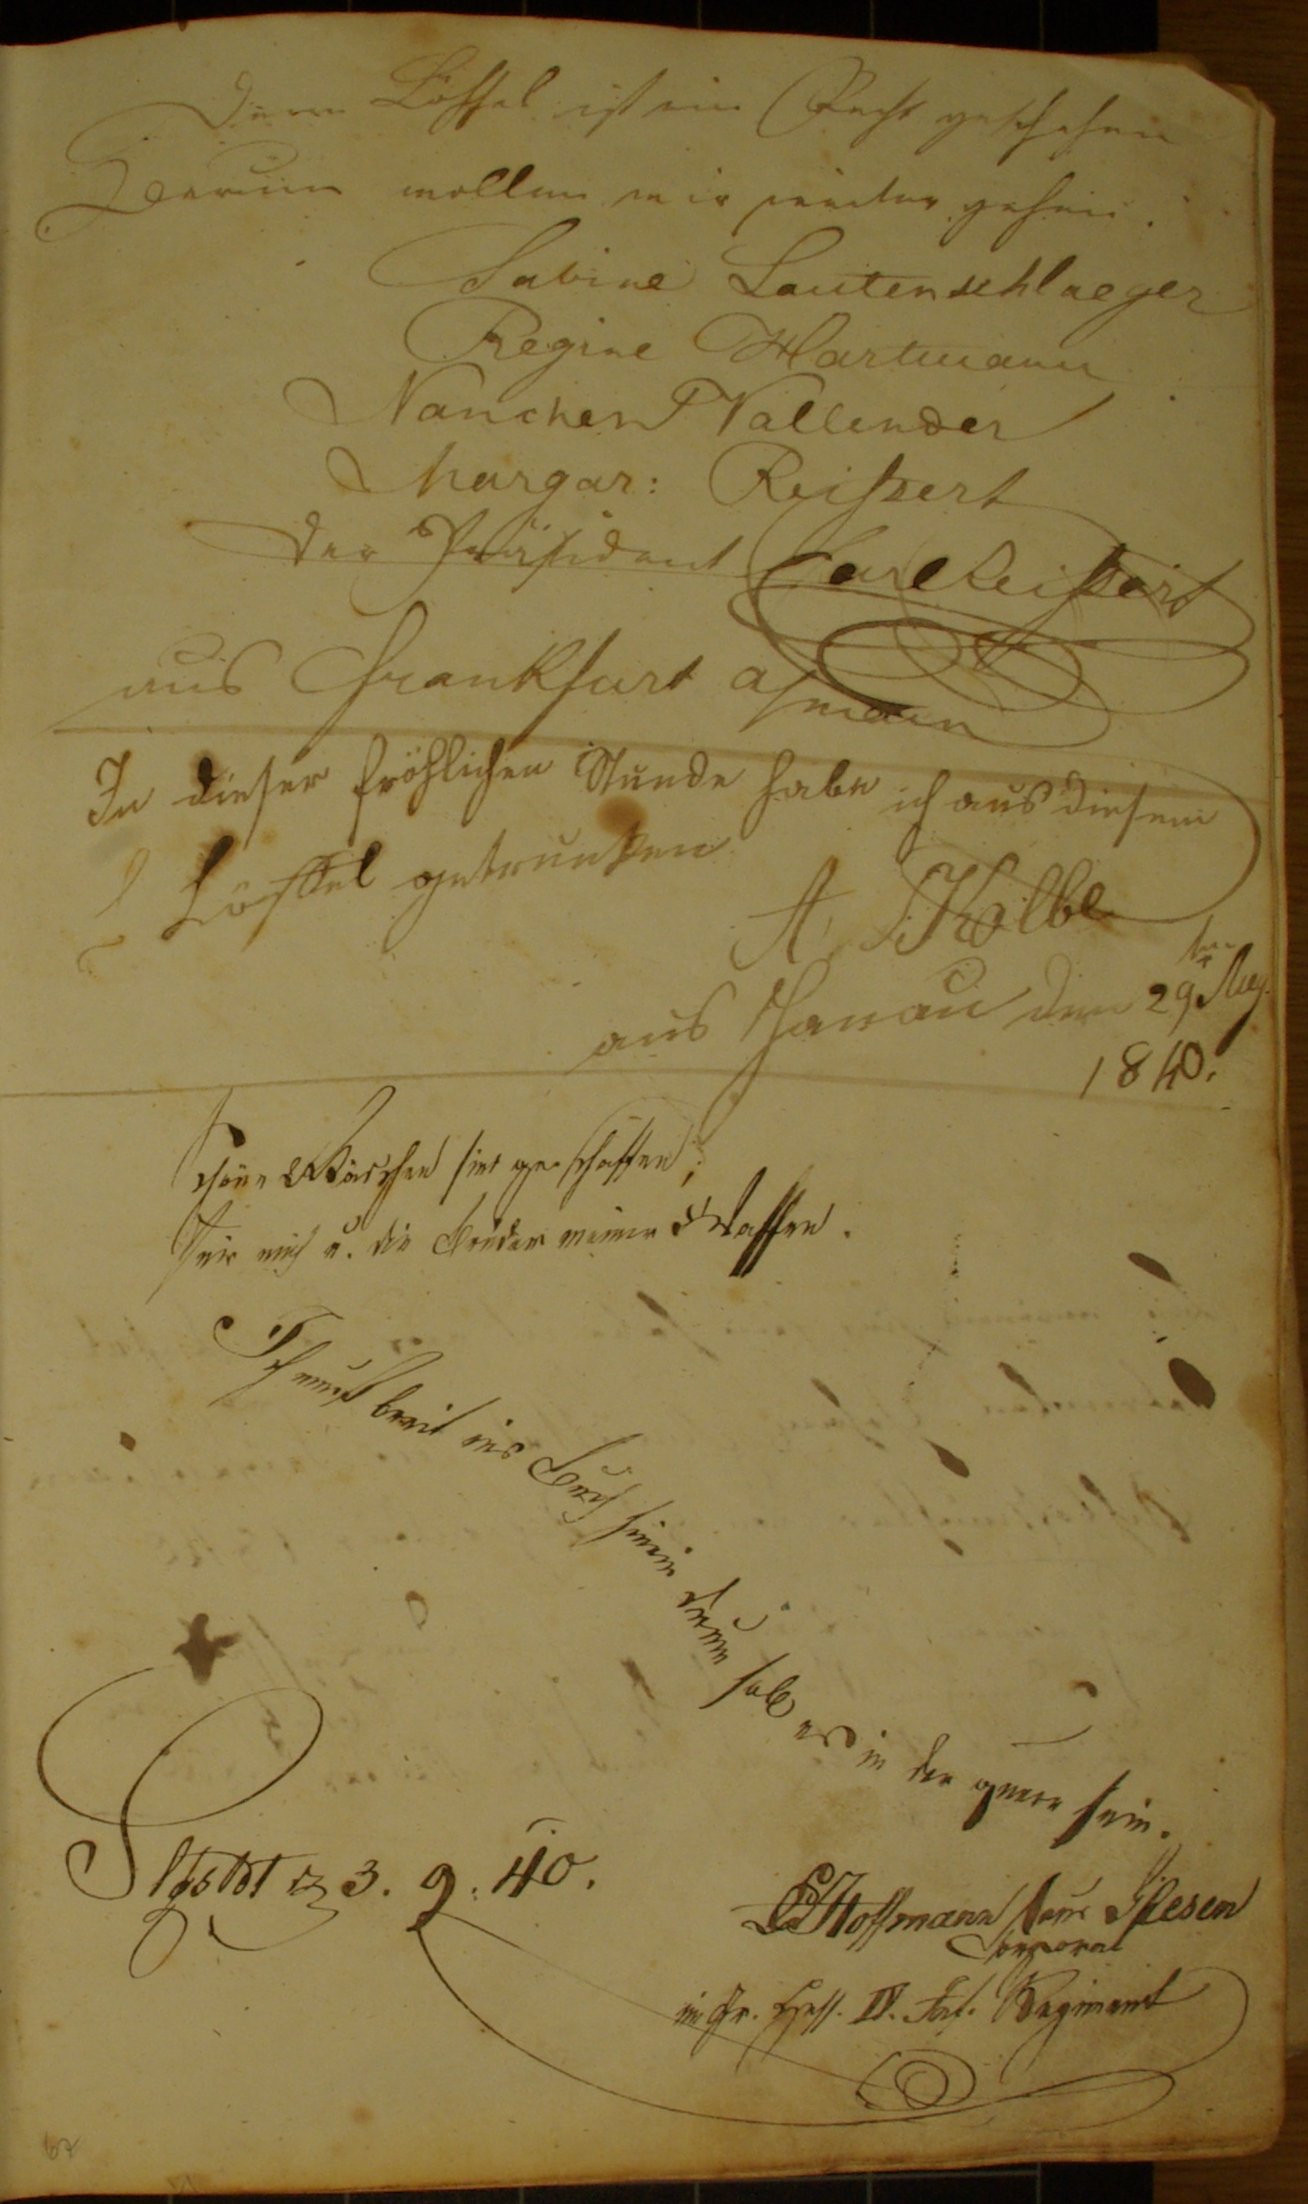 Dem Löffel ist ein Recht geschehen
Darum wollen wir weiter gehen.
Sabine Lautenschlaeger
Regine Hartmann
Nanchen Vallender
Margar: Reißert
Der Präsident Carl Reißert
aus Frankfurt a/main
In dieser fröhlichen Stunde habe ich aus diesem
Löffel getrunken
A. Kolbe
aus Hanau den 29ten Aug.
1840.
Schöne Mädchen sind geschaffen,
Für mich u. die Brüder meiner Waffen.
Ich muß breit ins Buch hinein drum hab es in der quere sein.
3. 9. 40.
Hoffmann aus
Corporal
im Gr. Hess. IV. Inf. Regiment
67